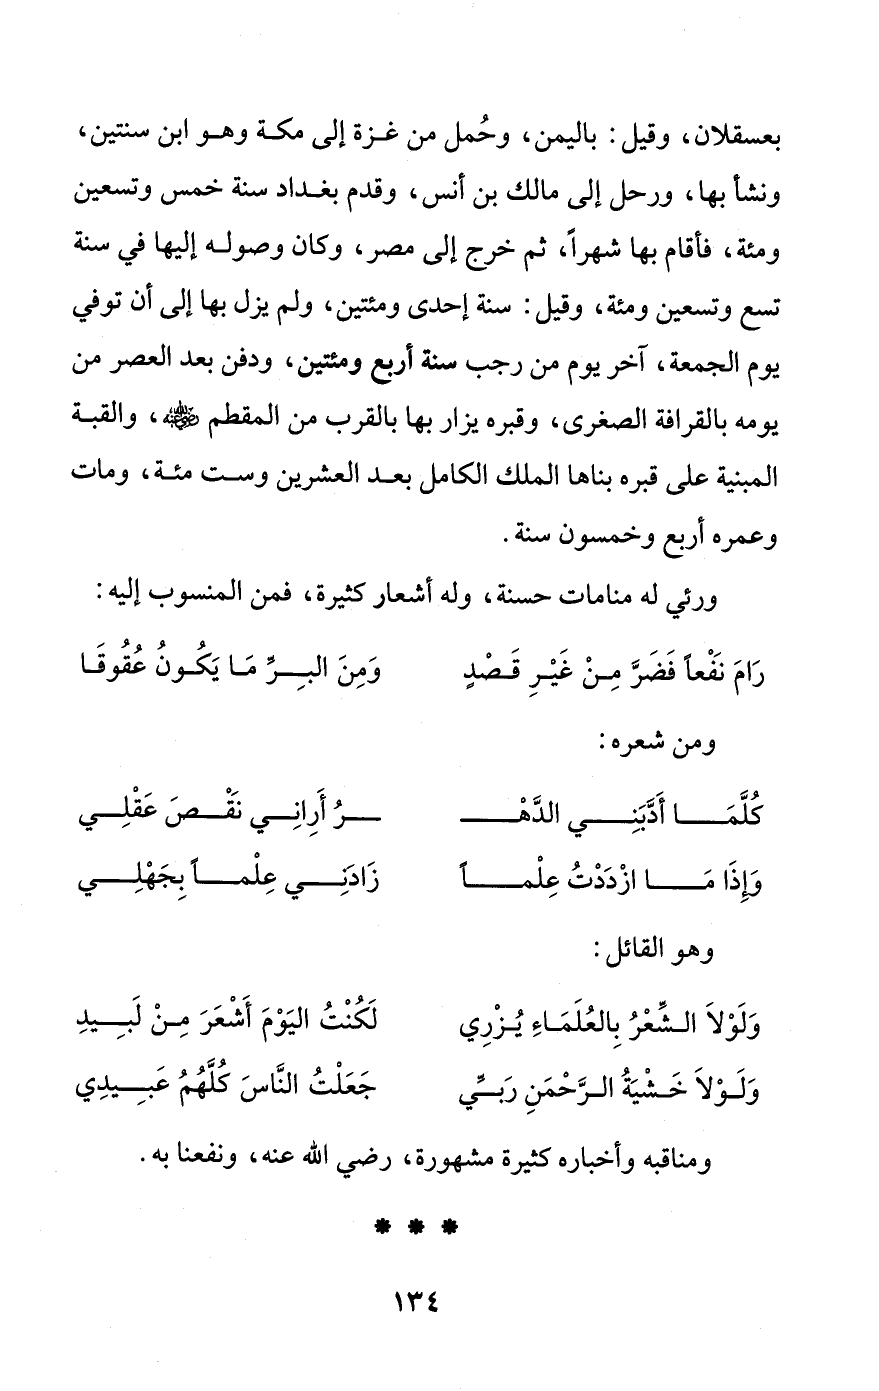 بعسقلان، وقيل: باليمن، وحُمل من غزة إلى مكة وهو ابن سنتين،
ونشأ بها، ورحل إلى مالك بن أنس، وقدم بغداد سنة خمس وتسعين
ومئة، فأقام بها شهراً، ثم خرج إلى مصر، وكان وصوله إليها في سنة
تسع وتسعين ومئة، وقيل: سنة إحدى ومئتين، ولم يزل بها إلى أن توفي
يوم الجمعة، آخر يوم من رجب سنة أربع ومئتين، ودفن بعد العصر من
يومه بالقرافة الصغرى، وقبره يزار بها بالقرب من المقطم ﷺ، والقبة
المبنية على قبره بناها الملك الكامل بعد العشرين وست مئة، ومات
وعمره أربع وخمسون سنة.
ورئي له منامات حسنة، وله أشعار كثيرة، فمن المنسوب إليه:
رَامَ نَفْعاً فَضَرَّ مِنْ غَيْرِ قَصْدٍ وَمِنَ البِرِّ مَا يَكُونُ عُقُوقَا
ومن شعره:
كُلَّمَا أَدَّبَنِي الدَّهْـ ـرُ أَرِانِي نَقْصَ عَقْلِي
وَإِذَا مَا ازْدَدْتُ عِلْماً زَادَنِي عِلْماً بِجَهْلِي
وهو القائل:
وَلَوْلاَ الشِّعْرُ بِالعُلَمَاءِ يُزْرِي لَكُنْتُ اليَوْمَ أَشْعَرَ مِنْ لَبِيدِ
وَلَوْلاَ خَشْيَةُ الرَّحْمَنِ رَبِّي جَعَلْتُ النَّاسَ كُلَّهُمُ عَبِيدِي
ومناقبه وأخباره كثيرة مشهورة، رضي الله عنه، ونفعنا به.
* * *
١٣٤